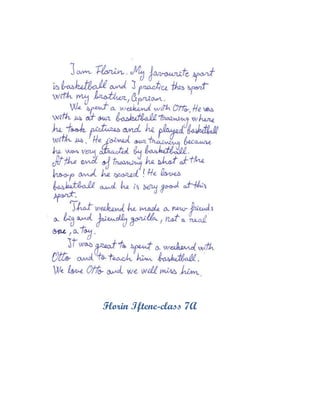 I am Florin. My favourite sport
is basketball and I practice this sport
with my brother, Ciprian.
We spent a weekend with Otto. He was
with us at our basketball training where
he took pictures and he played basketball
with us. He joined our training because
he was very atracted by basketball.
At the end of training he shot at the
hoop and he scored! He loves
basketball and he is very good at this
sport.
That weekend he made a new friend:
a big and friendly gorilla, not a real
one, a toy.
It was great to spent a weekend with
Otto and to teach him basketball.
We love Otto and we will miss him.
Florin Iftene-class 7A